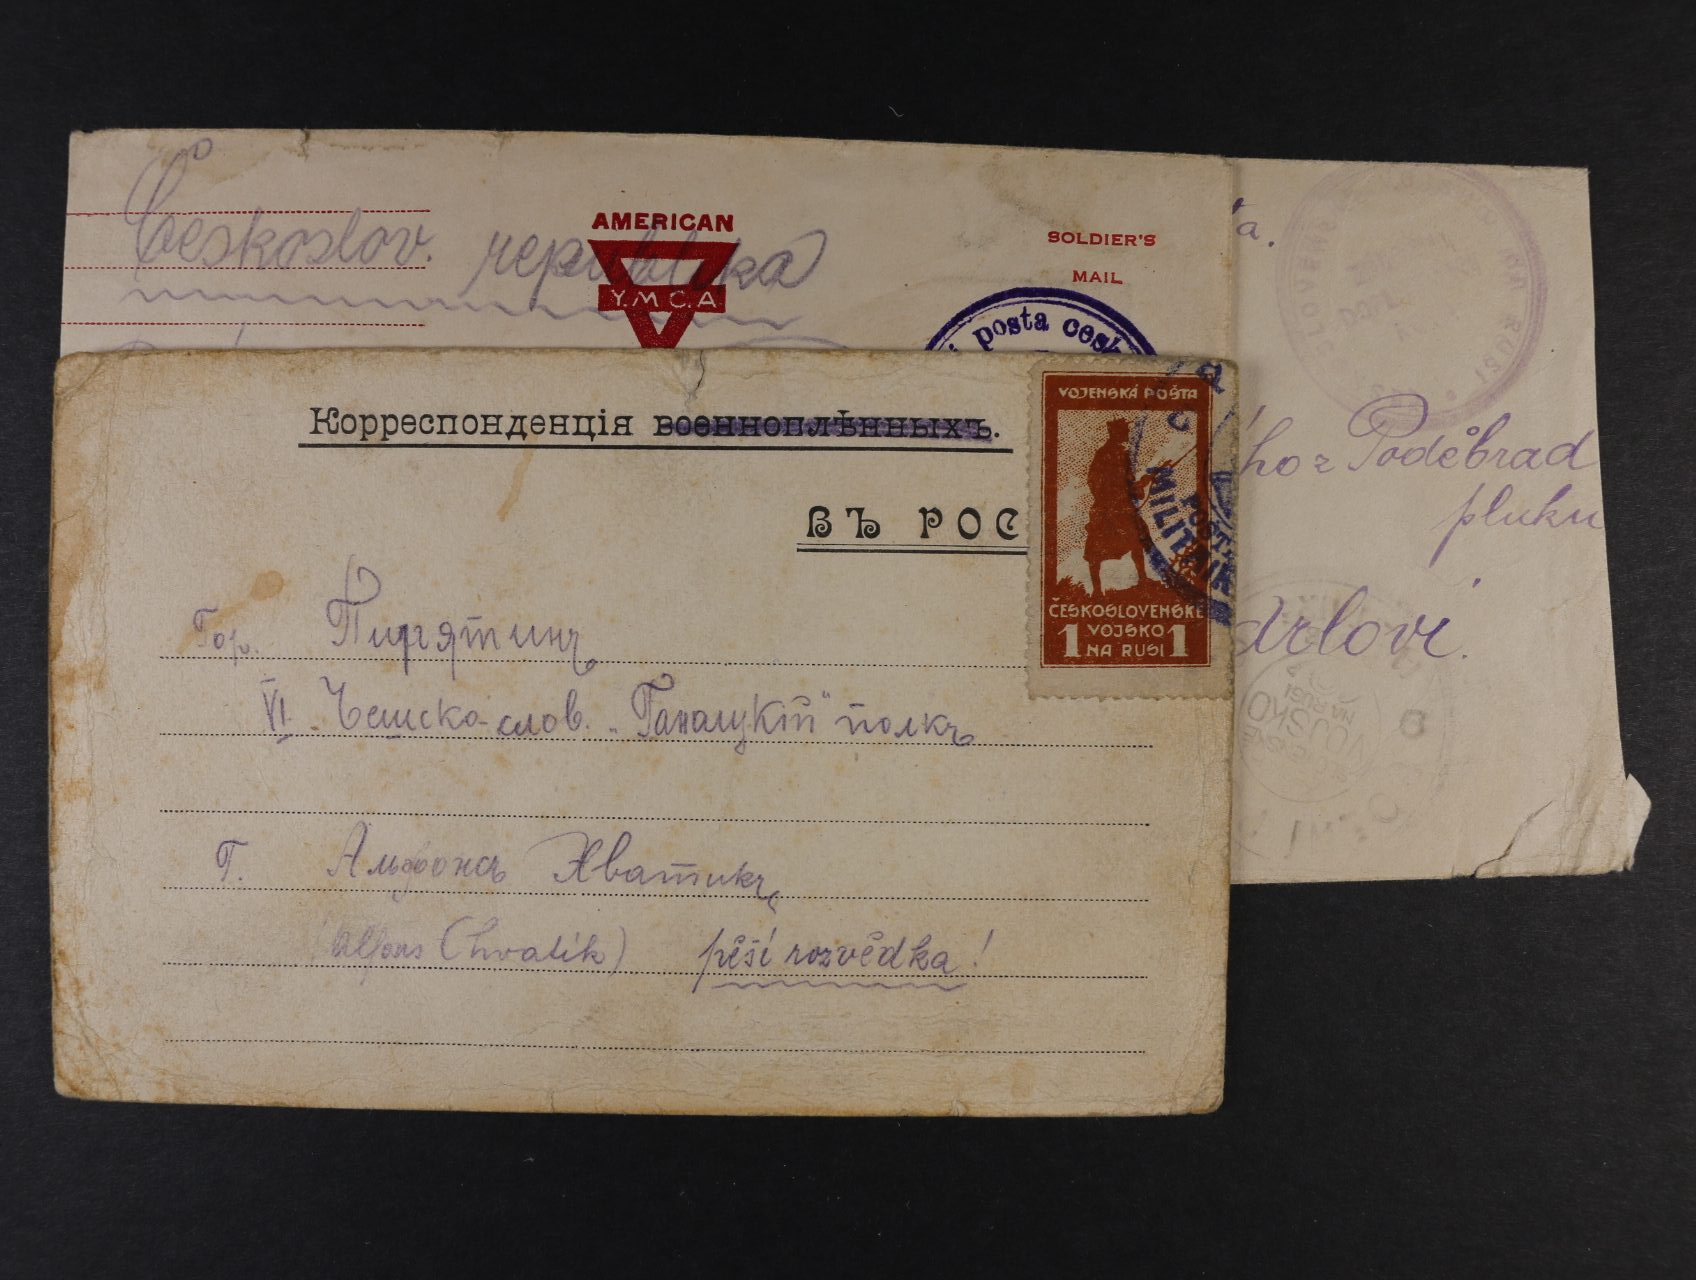 Českoslov. republika
AMERICAN
Y.M.C.A
SOLDIER'S
MAIL
posta česk
a.
ho z Poděbrad
pluku
Корреспонденція военноплѣнныхъ.
ВЪ РОС
VOJENSKÁ POŠTA
ČESKOSLOVENSKÉ
1 VOJSKO 1
NA RUSI
Гор. Пирятинъ
VI Чешско-слов. „Ганацкій“ полкъ
Г. Альфонсъ Хватикъ
(Alfons Chvatík) pěší rozvědka!